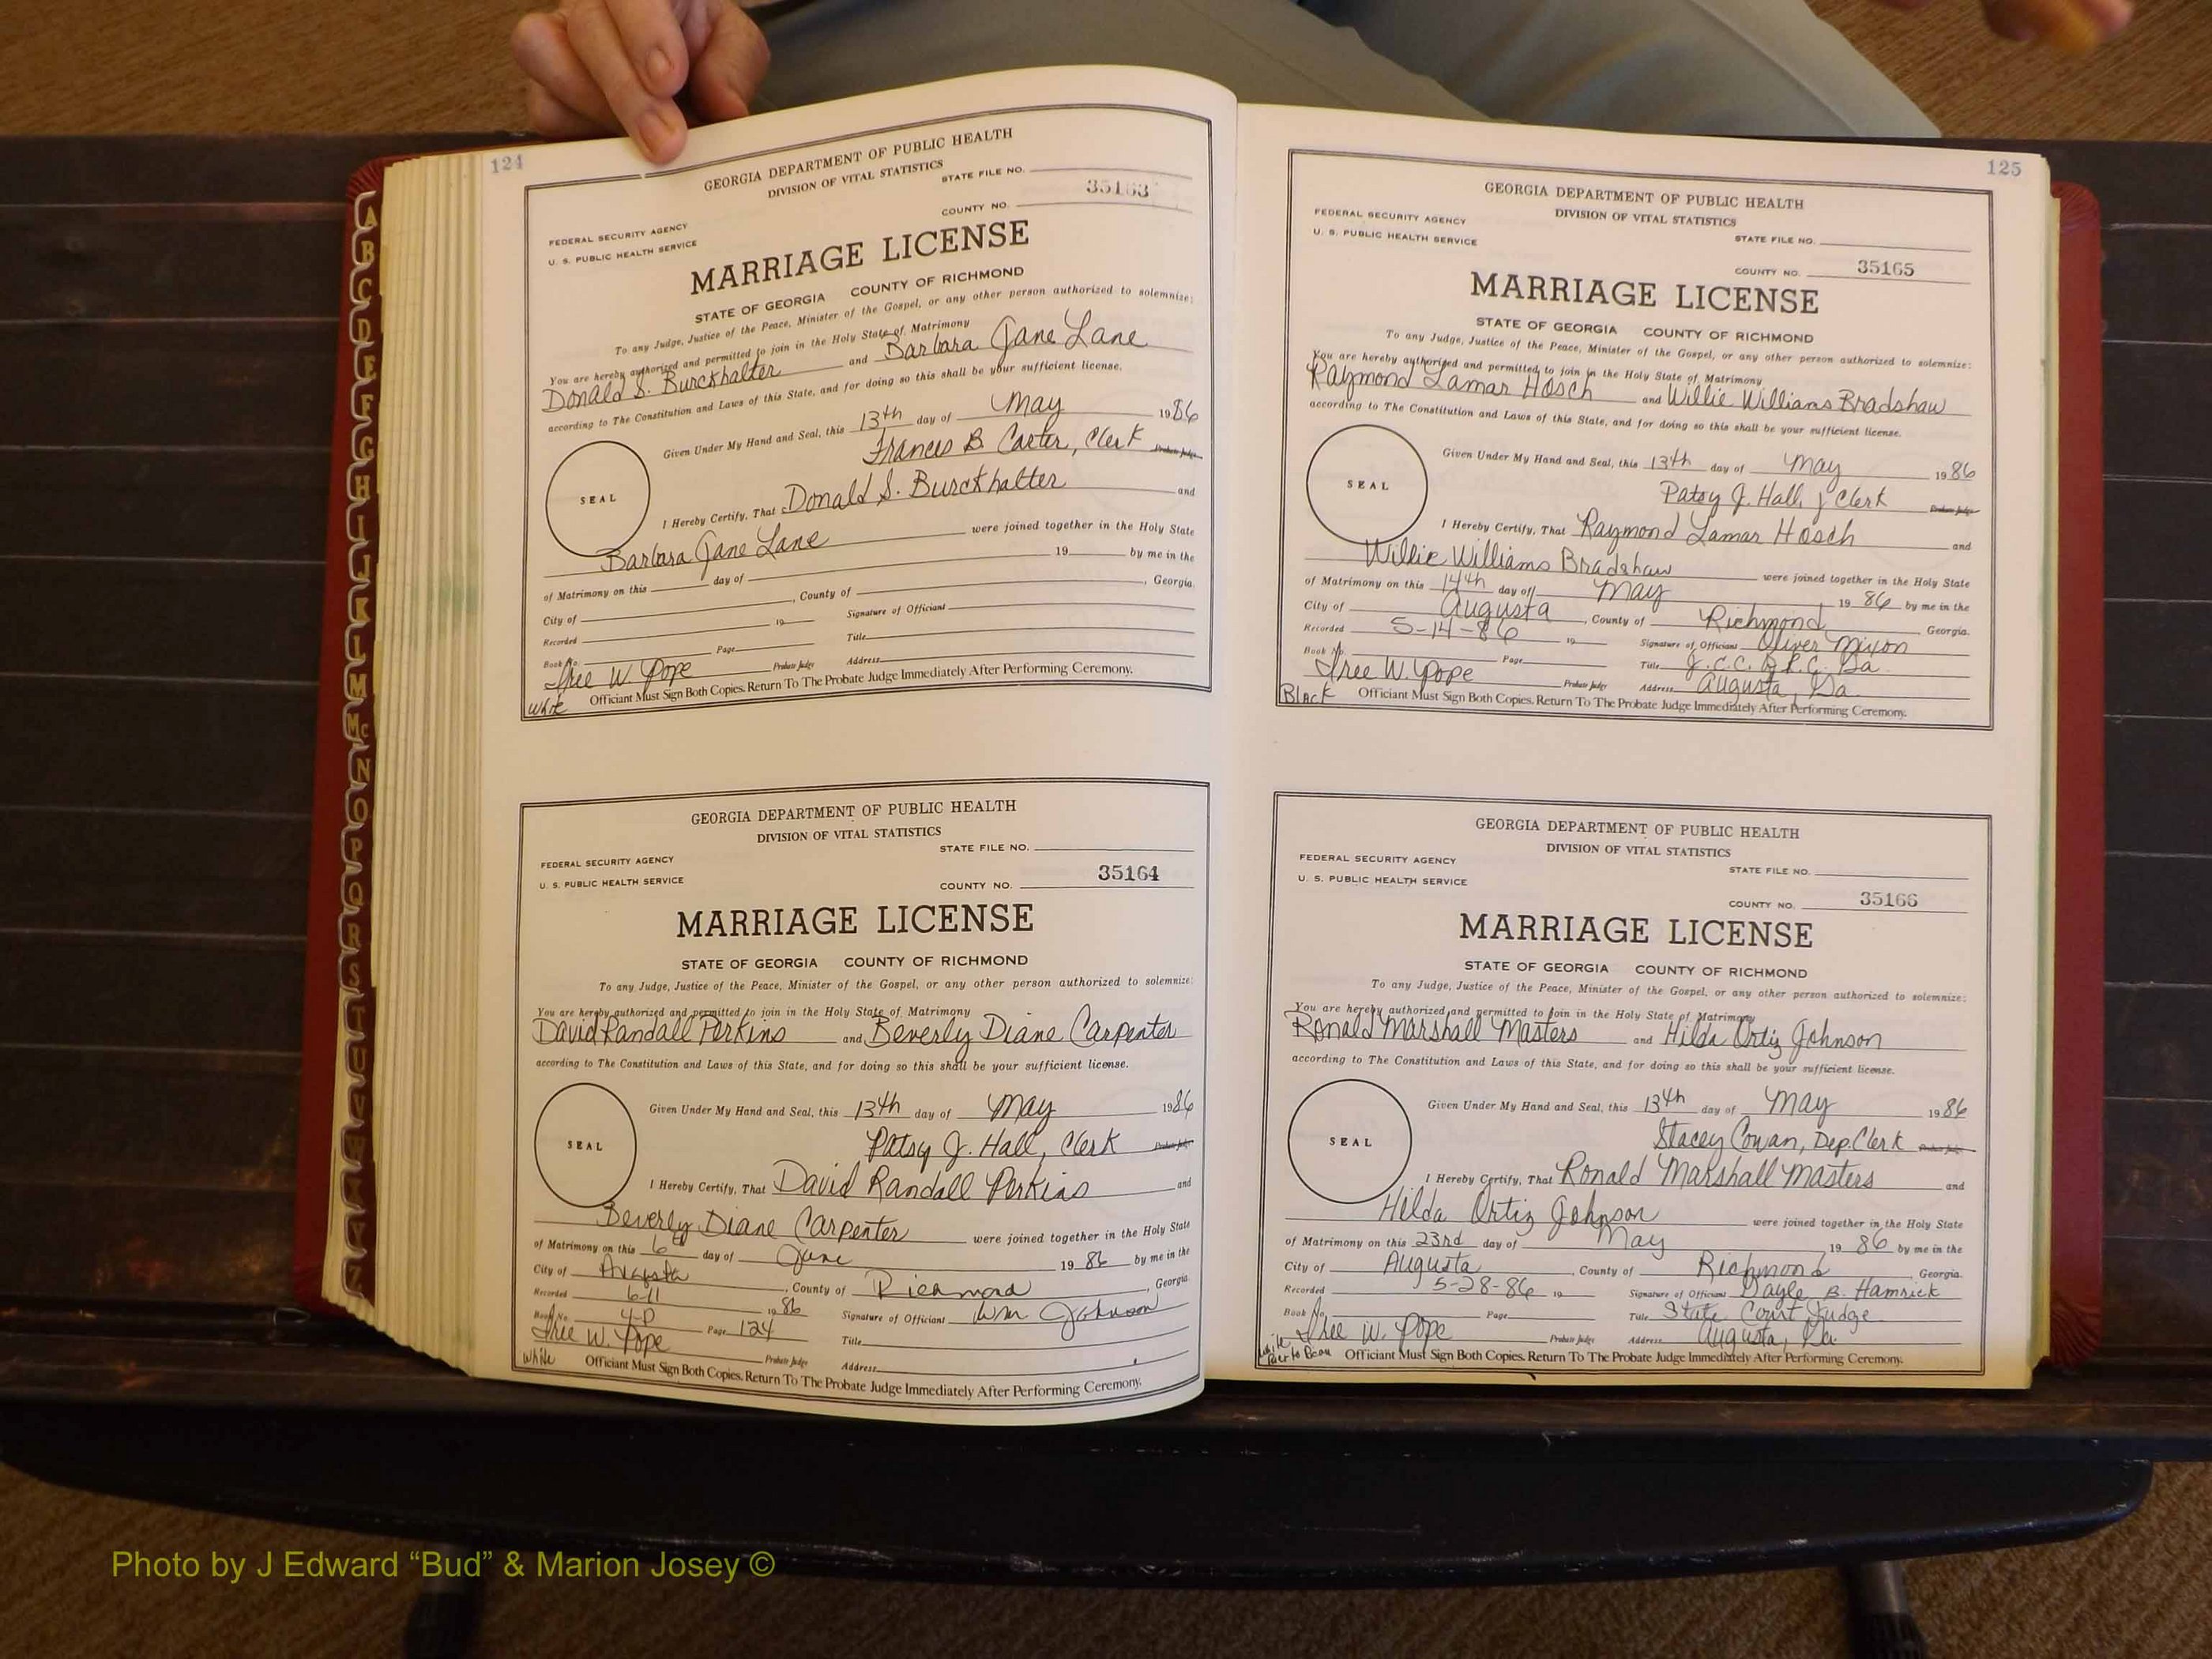 124
GEORGIA DEPARTMENT OF PUBLIC HEALTH
DIVISION OF VITAL STATISTICS
STATE FILE NO.
35163
COUNTY NO.
FEDERAL SECURITY AGENCY
U. S. PUBLIC HEALTH SERVICE
MARRIAGE LICENSE
STATE OF GEORGIA COUNTY OF RICHMOND
To any Judge, Justice of the Peace, Minister of the Gospel, or any other person authorized to solemnize:
You are hereby authorized and permitted to join in the Holy State of Matrimony
Donald S. Burckhalter and Barbara Jane Lane
according to The Constitution and Laws of this State, and for doing so this shall be your sufficient license.
Given Under My Hand and Seal, this 13th day of May 1986
Frances B. Carter, Clerk Probate Judge
SEAL
I Hereby Certify, That Donald S. Burckhalter and
Barbara Jane Lane were joined together in the Holy State
of Matrimony on this day of 19 by me in the
City of , County of , Georgia.
Recorded 19 Signature of Officiant
Book No. Page Title
W. Pope Probate Judge Address
White Officiant Must Sign Both Copies. Return To The Probate Judge Immediately After Performing Ceremony.
GEORGIA DEPARTMENT OF PUBLIC HEALTH
DIVISION OF VITAL STATISTICS
STATE FILE NO.
FEDERAL SECURITY AGENCY
U. S. PUBLIC HEALTH SERVICE
COUNTY NO. 35164
MARRIAGE LICENSE
STATE OF GEORGIA COUNTY OF RICHMOND
To any Judge, Justice of the Peace, Minister of the Gospel, or any other person authorized to solemnize:
You are hereby authorized and permitted to join in the Holy State of Matrimony
David Randall Perkins and Beverly Diane Carpenter
according to The Constitution and Laws of this State, and for doing so this shall be your sufficient license.
Given Under My Hand and Seal, this 13th day of May 1986
Patsy J. Hall, Clerk Probate Judge
SEAL
I Hereby Certify, That David Randall Perkins and
Beverly Diane Carpenter were joined together in the Holy State
of Matrimony on this 6 day of June 19 86 by me in the
City of Augusta , County of Richmond , Georgia.
Recorded 6-11 19 86 Signature of Officiant Wm Johnson
Book No. 4-D Page 124 Title
W. Pope Probate Judge Address
White Officiant Must Sign Both Copies. Return To The Probate Judge Immediately After Performing Ceremony.
125
GEORGIA DEPARTMENT OF PUBLIC HEALTH
DIVISION OF VITAL STATISTICS
FEDERAL SECURITY AGENCY
U. S. PUBLIC HEALTH SERVICE
STATE FILE NO.
COUNTY NO. 35165
MARRIAGE LICENSE
STATE OF GEORGIA COUNTY OF RICHMOND
To any Judge, Justice of the Peace, Minister of the Gospel, or any other person authorized to solemnize:
You are hereby authorized and permitted to join in the Holy State of Matrimony
Raymond Lamar Hosch and Willie Williams Bradshaw
according to The Constitution and Laws of this State, and for doing so this shall be your sufficient license.
Given Under My Hand and Seal, this 13th day of May 1986
Patsy J. Hall, Clerk Probate Judge
SEAL
I Hereby Certify, That Raymond Lamar Hosch and
Willie Williams Bradshaw were joined together in the Holy State
of Matrimony on this 14th day of May 19 86 by me in the
City of Augusta , County of Richmond Georgia.
Recorded 5-14-86 19 Signature of Officiant Oliver Mixon
Book No. Page Title J.C.C. R.C. Ga.
W. Pope Probate Judge Address Augusta, Ga.
Black Officiant Must Sign Both Copies. Return To The Probate Judge Immediately After Performing Ceremony.
GEORGIA DEPARTMENT OF PUBLIC HEALTH
DIVISION OF VITAL STATISTICS
FEDERAL SECURITY AGENCY
U. S. PUBLIC HEALTH SERVICE
STATE FILE NO.
COUNTY NO. 35166
MARRIAGE LICENSE
STATE OF GEORGIA COUNTY OF RICHMOND
To any Judge, Justice of the Peace, Minister of the Gospel, or any other person authorized to solemnize:
You are hereby authorized and permitted to join in the Holy State of Matrimony
Ronald Marshall Masters and Hilda Ortiz Johnson
according to The Constitution and Laws of this State, and for doing so this shall be your sufficient license.
Given Under My Hand and Seal, this 13th day of May 1986
Stacey Cowan, Dep. Clerk Probate Judge
SEAL
I Hereby Certify, That Ronald Marshall Masters and
Hilda Ortiz Johnson were joined together in the Holy State
of Matrimony on this 23rd day of May 19 86 by me in the
City of Augusta , County of Richmond , Georgia.
Recorded 5-28-86 19 Signature of Officiant Gayle B. Hamrick
Book No. Page Title State Court Judge
W. Pope Probate Judge Address Augusta, Ga.
White Puerto Rican Officiant Must Sign Both Copies. Return To The Probate Judge Immediately After Performing Ceremony.
Photo by J Edward “Bud” & Marion Josey ©